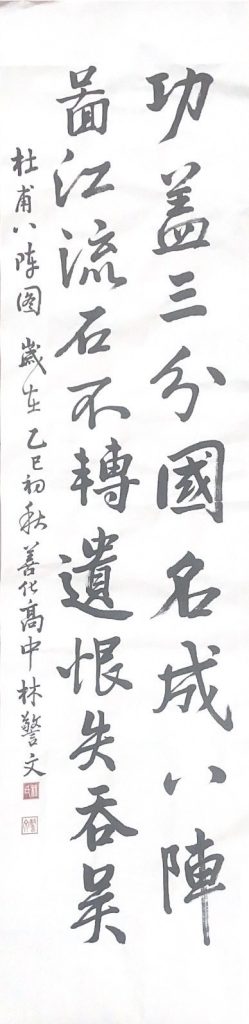 功蓋三分國名成八陣
啚江流石不轉遺恨失吞吳
杜甫八陣図 歲在乙巳初秋 善化高中 林警文